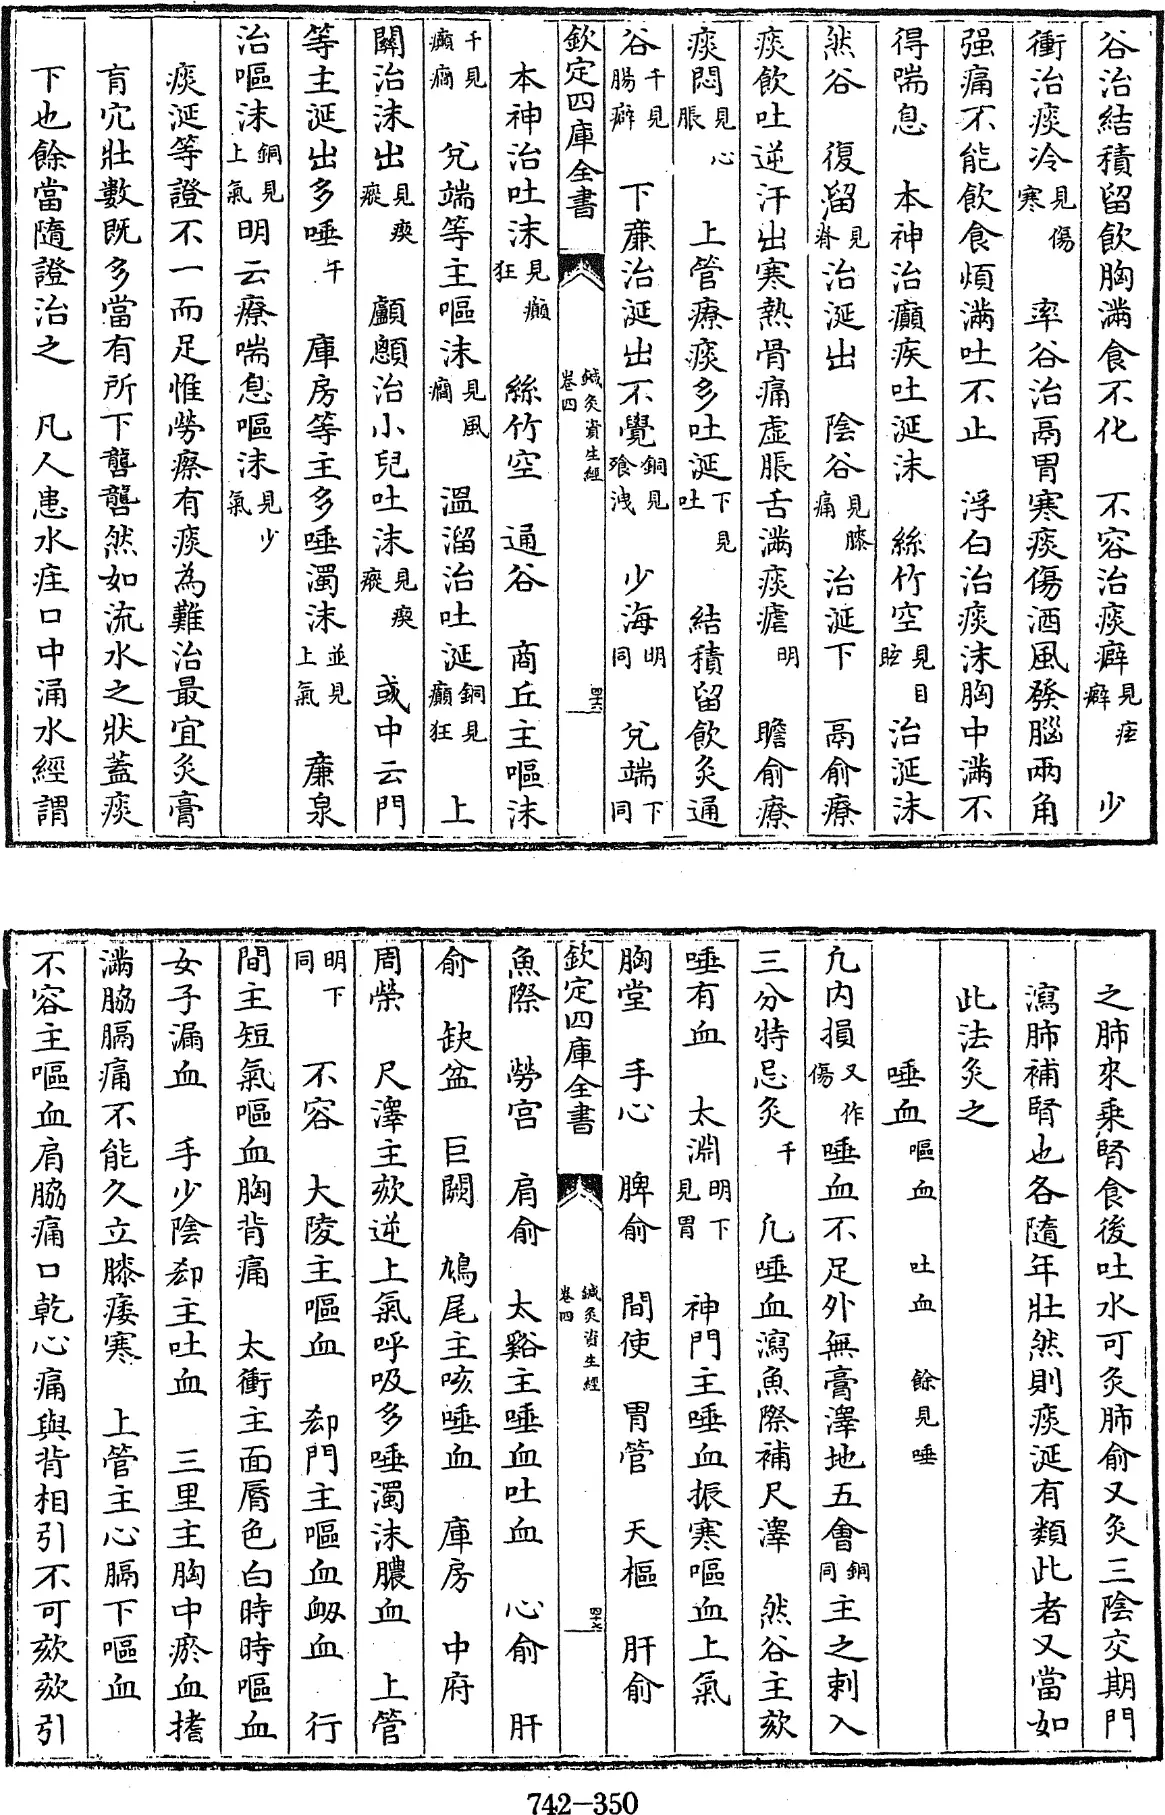 谷治結積留飲胸滿食不化　不容治痰癖見痃癖　少
衝治痰冷見傷寒　率谷治鬲胃寒痰傷酒風發腦兩角
强痛不能飲食煩滿吐不止　浮白治痰沫胸中滿不
得喘息　本神治癲疾吐涎沫　絲竹空見目眩治涎沫
然谷　復溜見脊治涎出　陰谷見膝痛治涎下　鬲俞療
痰飲吐逆汗出寒熱骨痛虛脹舌滿痰瘧明　膽俞療
痰悶見心脹　上管療痰多吐涎下見吐　結積留飲灸通
谷千見腸癖　下廉治涎出不覺銅見飱洩　少海明同　兌端下同
欽定四庫全書　鍼灸資生經卷四　四十六
本神治吐沫見癲狂　絲竹空　通谷　商丘主嘔沫
千見癲癇　兌端等主嘔沫見風癇　溫溜治吐涎銅見癲狂　上
關治沫出見瘈瘲　顱顖治小兒吐沫見瘈瘲　或中云門
等主涎出多唾千　庫房等主多唾濁沫並見上氣　廉泉
治嘔沫銅見上氣明云療喘息嘔沫見少氣
痰涎等證不一而足惟勞瘵有痰為難治最宜灸膏
肓穴壯數既多當有所下礱礱然如流水之狀蓋痰
下也餘當隨證治之　凡人患水疰口中涌水經謂
之肺來乘腎食後吐水可灸肺俞又灸三陰交期門
瀉肺補腎也各隨年壯然則痰涎有類此者又當如
此法灸之
唾血　嘔血　吐血　餘見唾
凡內損又作傷唾血不足外無膏澤地五會銅同主之刺入
三分特忌灸千　凡唾血瀉魚際補尺澤　然谷主欬
唾有血　太淵明下見胃　神門主唾血振寒嘔血上氣
胸堂　手心　脾俞　間使　胃管　天樞　肝俞
欽定四庫全書　鍼灸資生經卷四　四十七
魚際　勞宮　肩俞　太谿主唾血吐血　心俞　肝
俞　缺盆　巨闕　鳩尾主咳唾血　庫房　中府
周榮　尺澤主欬逆上氣呼吸多唾濁沫膿血　上管
明下同　不容　大陵主嘔血　郄門主嘔血衂血　行
間主短氣嘔血胸背痛　太衝主面脣色白時時嘔血
女子漏血　手少陰郄主吐血　三里主胸中瘀血搘
滿脇膈痛不能久立膝痿寒　上管主心膈下嘔血
不容主嘔血肩脇痛口乾心痛與背相引不可欬欬引
742—350